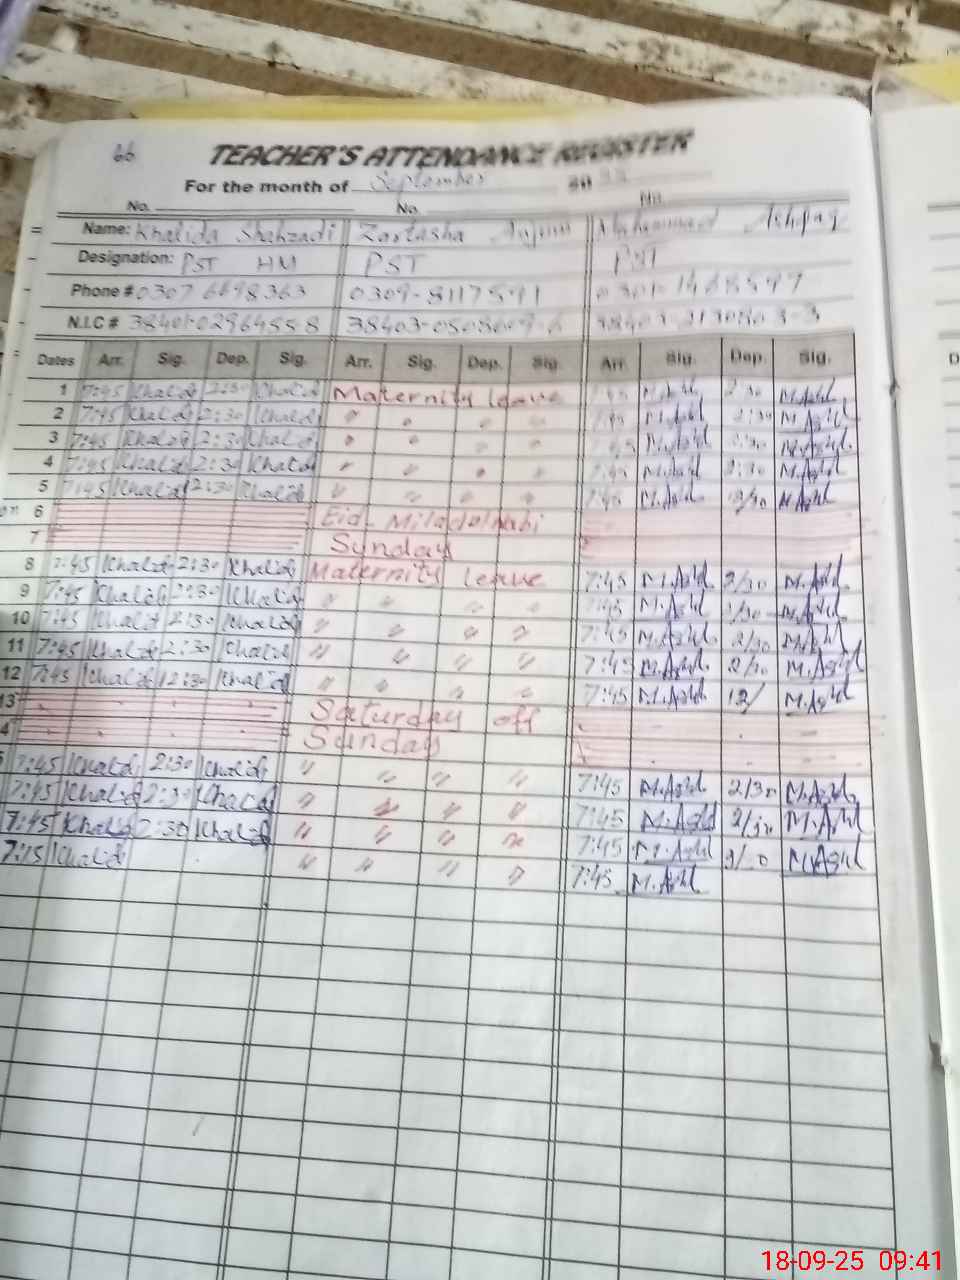 66
TEACHER'S ATTENDANCE REGISTER
For the month of September 20
No. No. No.
Name: Khalida Shahzadi Zartasha Anjum Muhammad Ashfaq
Designation: PST HM PST PST
Phone # 0307 6698363 0309-8117591
N.I.C #
Dates Arr. Sig. Dep. Sig. Arr. Sig. Dep. Sig. Arr. Sig. Dep. Sig.
1 7:45 Khalid 2:30 Khalid Maternity leave 7:45 M.Ashf 2:30 M.Ashf
2 7:45 Khalid 2:30 Khalid " " " " 7:45 M.Ashf 2:30 M.Ashf
3 7:45 Khalid 2:30 Khalid " " " " 7:45 M.Ashf 2:30 M.Ashf
4 7:45 Khalid 2:30 Khalid " " " " 7:45 M.Ashf 2:30 M.Ashf
5 7:45 Khalid 2:30 Khalid " " " " 7:45 M.Ashf 2/30 M.Ashf
6 Eid-Miladulnabi
7 Sunday
8 7:45 Khalid 2:30 Khalid Maternity leave 7:45 M.Ashf 2/30 M.Ashf
9 7:45 Khalid 2:30 Khalid " " " " 7:45 M.Ashf 2/30 M.Ashf
10 7:45 Khalid 2:30 Khalid " " " " 7:45 M.Ashf 2/30 M.Ashf
11 7:45 Khalid 2:30 Khalid " " " " 7:45 M.Ashf 2/30 M.Ashf
12 7:45 Khalid 12:30 Khalid " " " " 7:45 M.Ashf 12/ M.Ashf
13 Saturday off
4 Sunday
7:45 Khalid 2:30 Khalid " " " " 7:45 M.Ashf 2/30 M.Ashf
7:45 Khalid 2:30 Khalid " " " " 7:45 M.Ashf 2/30 M.Ashf
7:45 Khalid 2:30 Khalid " " " " 7:45 M.Ashf M.Ashf
Khalid " " " " 7:45 M.Ashf
18-09-25 09:41